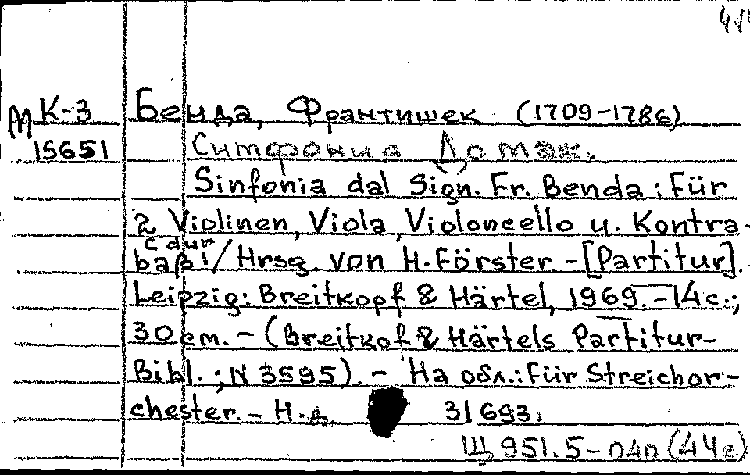 М К-3 Бенда, Франтишек (1709-1786)
15651 Симфония До маж.
Sinfonia dal Sign. Fr. Benda : Für
2 Violinen, Viola, Violoncello u. Kontra-
C dur
baß! / Hrsg. von H. Förster. - [Partitur].
Leipzig: Breitkopf & Härtel, 1969. - 14 с.;
30 см. - (Breitkof & Härtels Partitur-
Bibl.; N 3595). - На обл.: für Streichor-
chester. - Н.д. 31693.
Щ951.5-040 (44е)